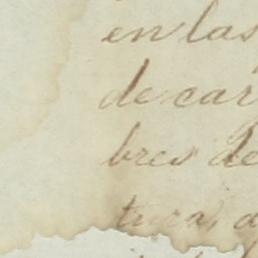 en las
de car
bres de
tura, a